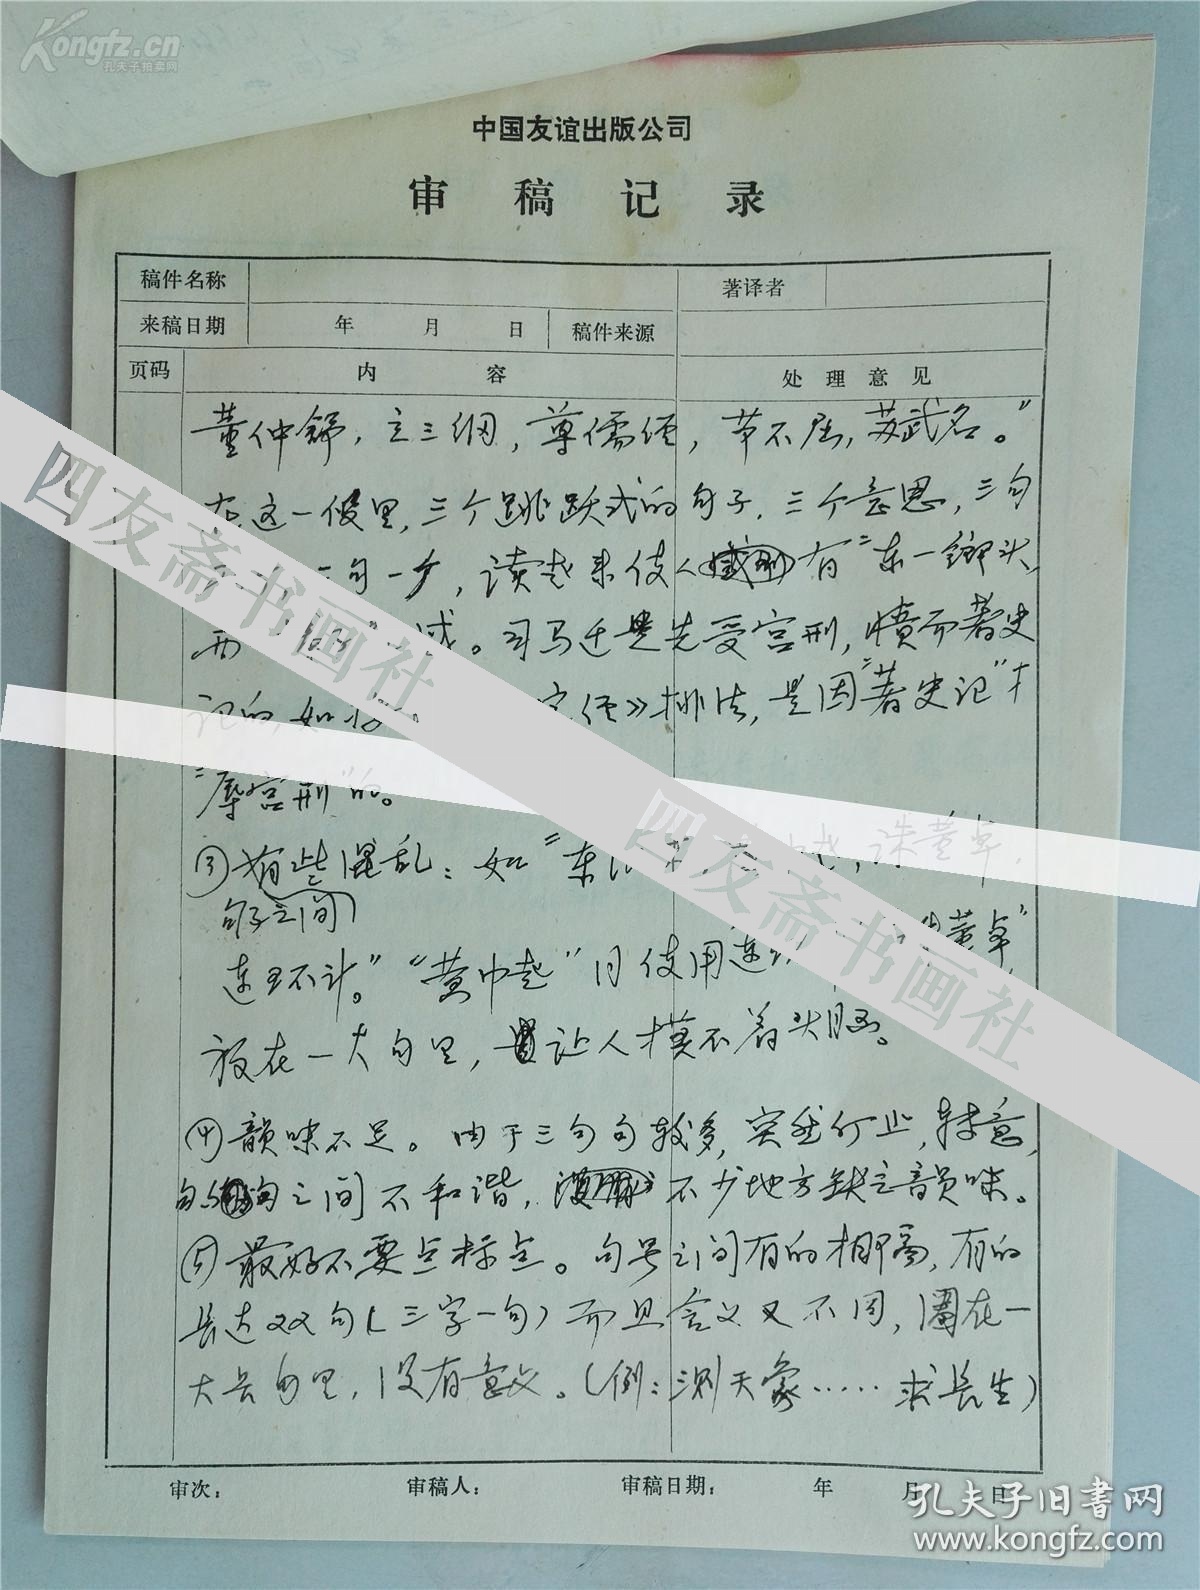 Kongfz.cn
孔夫子拍卖网
中国友谊出版公司
审稿记录
稿件名称 著译者
来稿日期 年 月 日 稿件来源
页码 内容 处理意见
董仲舒，立三纲，尊儒经，节不屈，苏武名。”
在这一段里，三个跳跃式的句子，三个意思，三句
句一个，读起来使人有“东一鎯头，
西 感。司马迁是先受宫刑，愤而著史
记的，如按 经》排法，是因“著史记”才
“辱宫刑”的。
③有些混乱：如“东 诛董卓，
句子之间
连环计。”“黄巾起”同使用连 诛董卓”
放在一大句里，让人摸不着头脑。
④韵味不足。由于三句句较多，突然停止，转意，
句与句之间不和谐，不少地方缺乏韵味。
⑤最好不要点标点。句号之间有的相隔，有的
长达双句（三字一句）而且含义又不同，圈在一
大长句里，没有意义。（例：测天象……求长生）
审次： 审稿人： 审稿日期： 年 月 日
四友斋书画社
四友斋书画社
孔夫子旧书网
www.kongfz.com